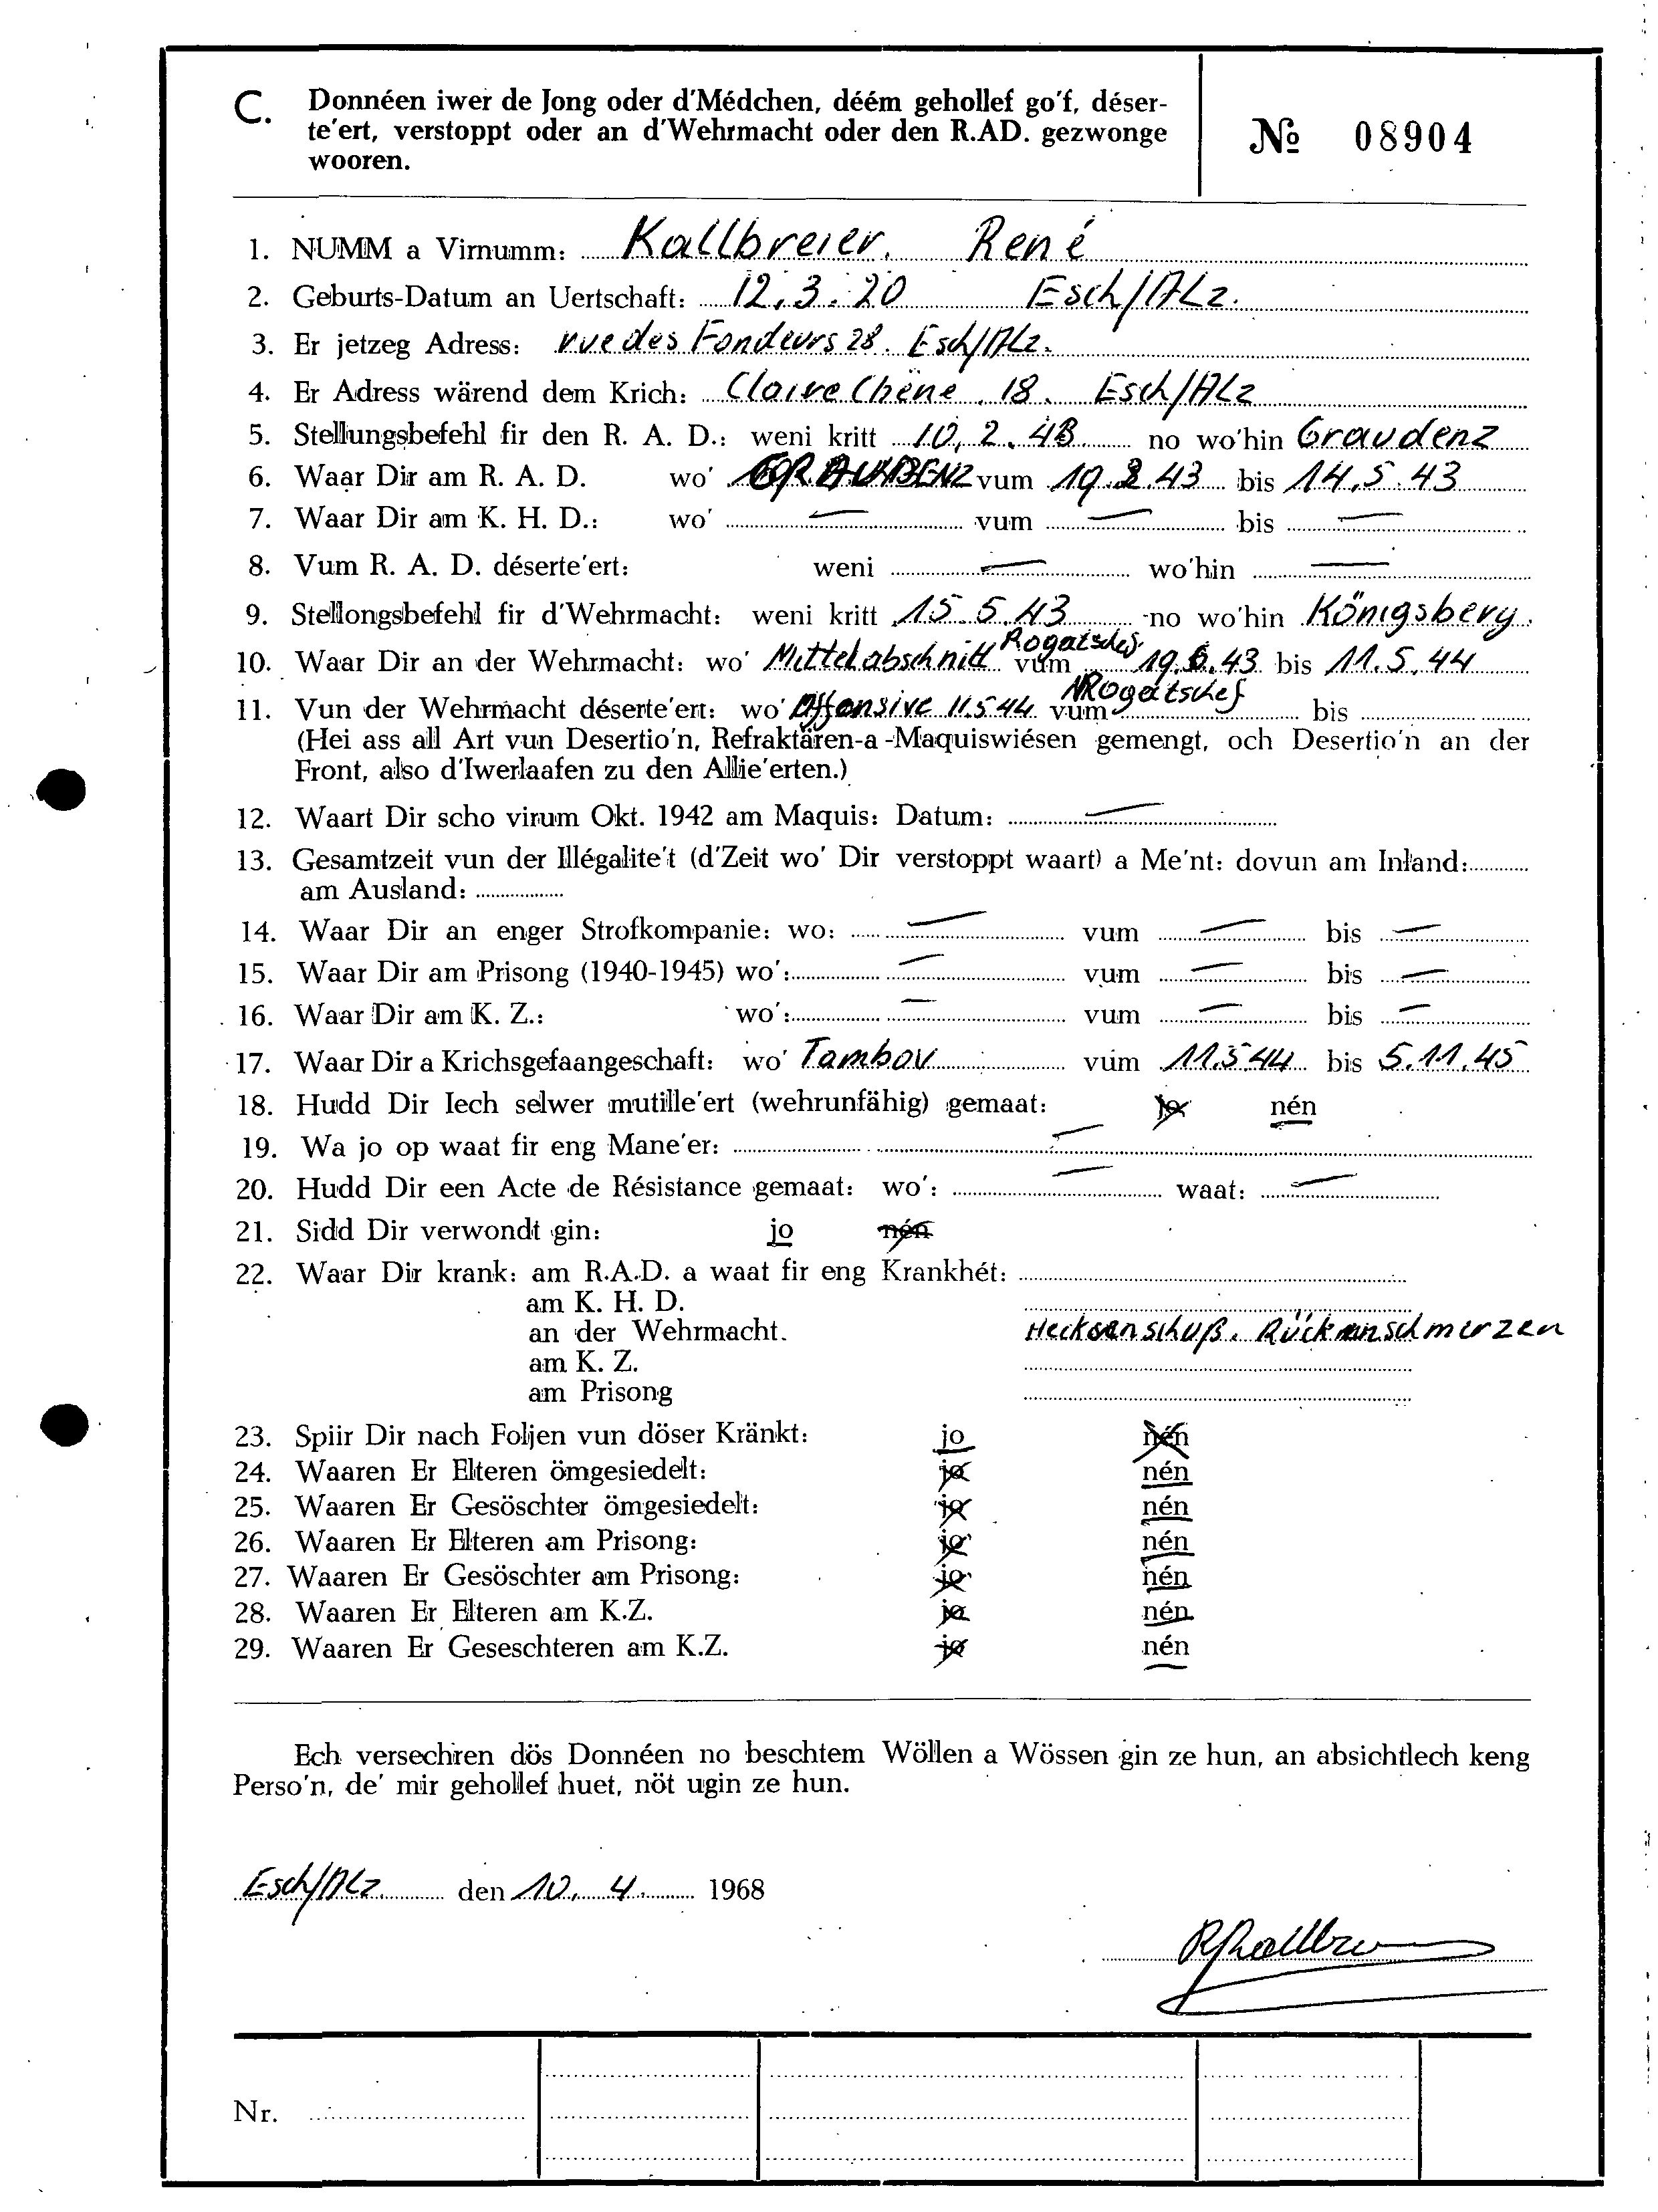 C. Donnéen iwer de Jong oder d'Médchen, déém gehollef go'f, déser-
te'ert, verstoppt oder an d'Wehrmacht oder den R.AD. gezwonge
wooren.
№ 08904
1. NUMM a Virnumm: Kallbreier, René
2. Geburts-Datum an Uertschaft: 12.3.20 Esch/Alz.
3. Er jetzeg Adress: rue des Fondeurs 28. Esch/Alz.
4. Er Adress wärend dem Krich: Claire Chêne, 18. Esch/Alz
5. Stellungsbefehl fir den R. A. D.: weni kritt 10.2.43 no wo'hin Graudenz
6. Waar Dir am R. A. D. wo' GRAUDENZ vum 19.2.43 bis 14.5.43
7. Waar Dir am K. H. D.: wo' — vum — bis —
8. Vum R. A. D. déserte'ert: weni — wo'hin —
9. Stellongsbefehl fir d'Wehrmacht: weni kritt 15.5.43 no wo'hin Königsberg.
10. Waar Dir an der Wehrmacht: wo' Mittelabschnitt Rogatschef vum 19.5.43 bis 11.5.44
11. Vun der Wehrmacht déserte'ert: wo' Offensive 11.5.44 vum Rogatschef bis
(Hei ass all Art vun Desertio'n, Refraktären-a-Maquiswiésen gemengt, och Desertio'n an der
Front, also d'Iwerlaafen zu den Allie'erten.)
12. Waart Dir scho virum Okt. 1942 am Maquis: Datum: —
13. Gesamtzeit vun der Illégalite't (d'Zeit wo' Dir verstoppt waart) a Me'nt: dovun am Inland:
am Ausland:
14. Waar Dir an enger Strofkompanie: wo: — vum — bis —
15. Waar Dir am Prisong (1940-1945) wo': — vum — bis —
16. Waar Dir am K. Z.: wo': — vum — bis —
17. Waar Dir a Krichsgefaangeschaft: wo' Tambov vum 11.5.44 bis 5.11.45
18. Hudd Dir Iech selwer mutille'ert (wehrunfähig) gemaat: jo nén
19. Wa jo op waat fir eng Mane'er: —
20. Hudd Dir een Acte de Résistance gemaat: wo': — waat: —
21. Sidd Dir verwondt gin: jo nén
22. Waar Dir krank: am R.A.D. a waat fir eng Krankhét:
am K. H. D.
an der Wehrmacht. Hecksenschuß. Rückenschmerzen
am K. Z.
am Prisong
23. Spiir Dir nach Foljen vun döser Kränkt: jo nén
24. Waaren Er Elteren ömgesiedelt: jo nén
25. Waaren Er Gesöschter ömgesiedelt: jo nén
26. Waaren Er Elteren am Prisong: jo nén
27. Waaren Er Gesöschter am Prisong: jo nén
28. Waaren Er Elteren am K.Z. jo nén
29. Waaren Er Geseschteren am K.Z. jo nén
Ech versechren dös Donnéen no beschtem Wöllen a Wössen gin ze hun, an absichtlech keng
Perso'n, de' mir gehollef huet, nöt ugin ze hun.
Esch/Alz den 10. 4. 1968
Nr.